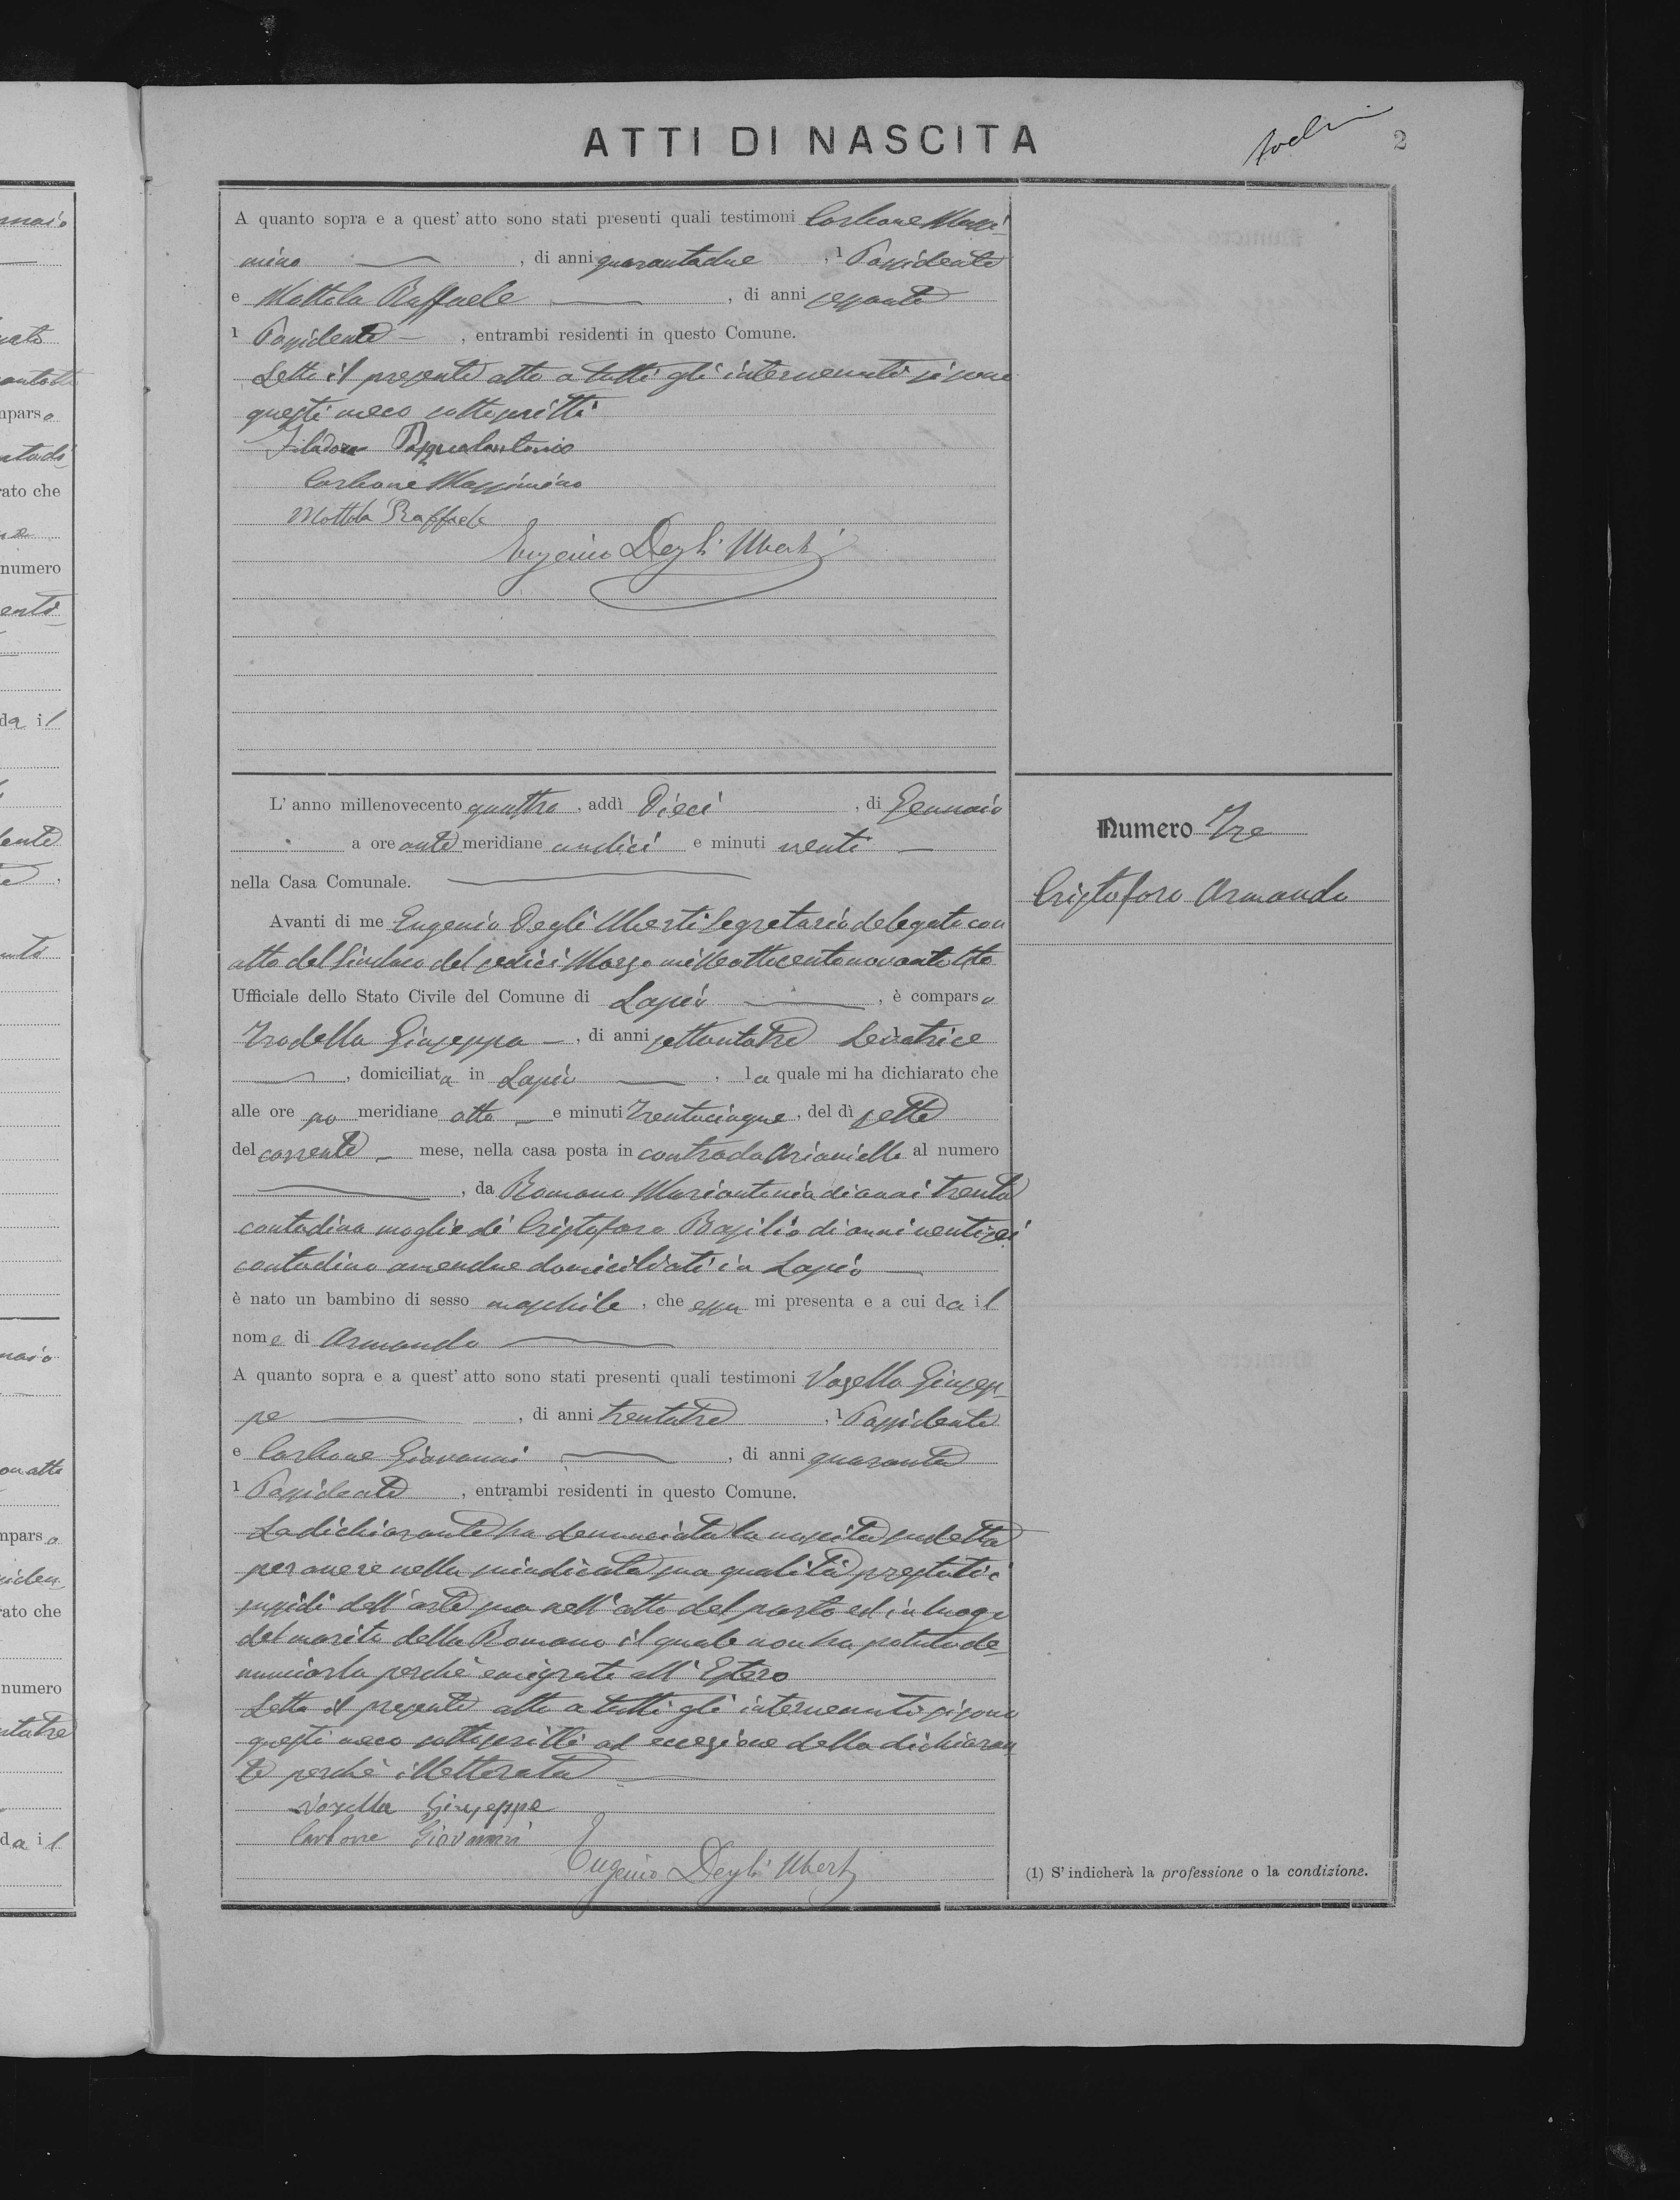 ATTI DI NASCITA
2
A quanto sopra e a quest' atto sono stati presenti quali testimoni Carbone Massi-
mino, di anni quarantadue, 1 Possidente
e Mottola Raffaele, di anni sessanta
1 Possidente, entrambi residenti in questo Comune.
Letto il presente atto a tutti gli intervenuti si sono
questi meco sottoscritti
Filadoro Pasqualantonio
Carbone Massimino
Mottola Raffaele
Eugenio Degli Uberti
L' anno millenovecento quattro, addì Dieci, di Gennaio
a ore ante meridiane undici e minuti venti
nella Casa Comunale.
Avanti di me Eugenio Degli Uberti Segretario delegato con
atto del Sindaco del sedici Marzo milleottocentonovantotto
Ufficiale dello Stato Civile del Comune di Lapio, è comparsa
Trodella Giuseppa, di anni settantatre Levatrice
, domiciliata in Lapio, la quale mi ha dichiarato che
alle ore po meridiane otto e minuti trentacinque, del dì sette
del corrente mese, nella casa posta in contrada Arianiello al numero
, da Romano Mariantonia di anni trenta
contadina moglie di Cristoforo Basilio di anni ventisei
contadino amendue domiciliati in Lapio
è nato un bambino di sesso maschile, che essa mi presenta e a cui da il
nome di Armando
A quanto sopra e a quest' atto sono stati presenti quali testimoni Vozella Giusep-
pe, di anni trentatre, 1 Possidente
e Carbone Giovanni, di anni quaranta
1 Possidente, entrambi residenti in questo Comune.
La dichiarante ha denunciata la nascita sudetta
per avere nella suindicata sua qualità prestati i
sussidi dell'arte sua nell'atto del parto ed in luogo
del marito della Romano il quale non ha potuto de-
nunciarla perchè emigrato all'Estero
Letto il presente atto a tutti gli intervenuti si sono
questi meco sottoscritti ad eccezione della dichiaran
te perchè illetterata
Vozella Giuseppe
Carbone Giovanni
Eugenio Degli Uberti
Numero Tre
Cristoforo Armando
(1) S' indicherà la professione o la condizione.